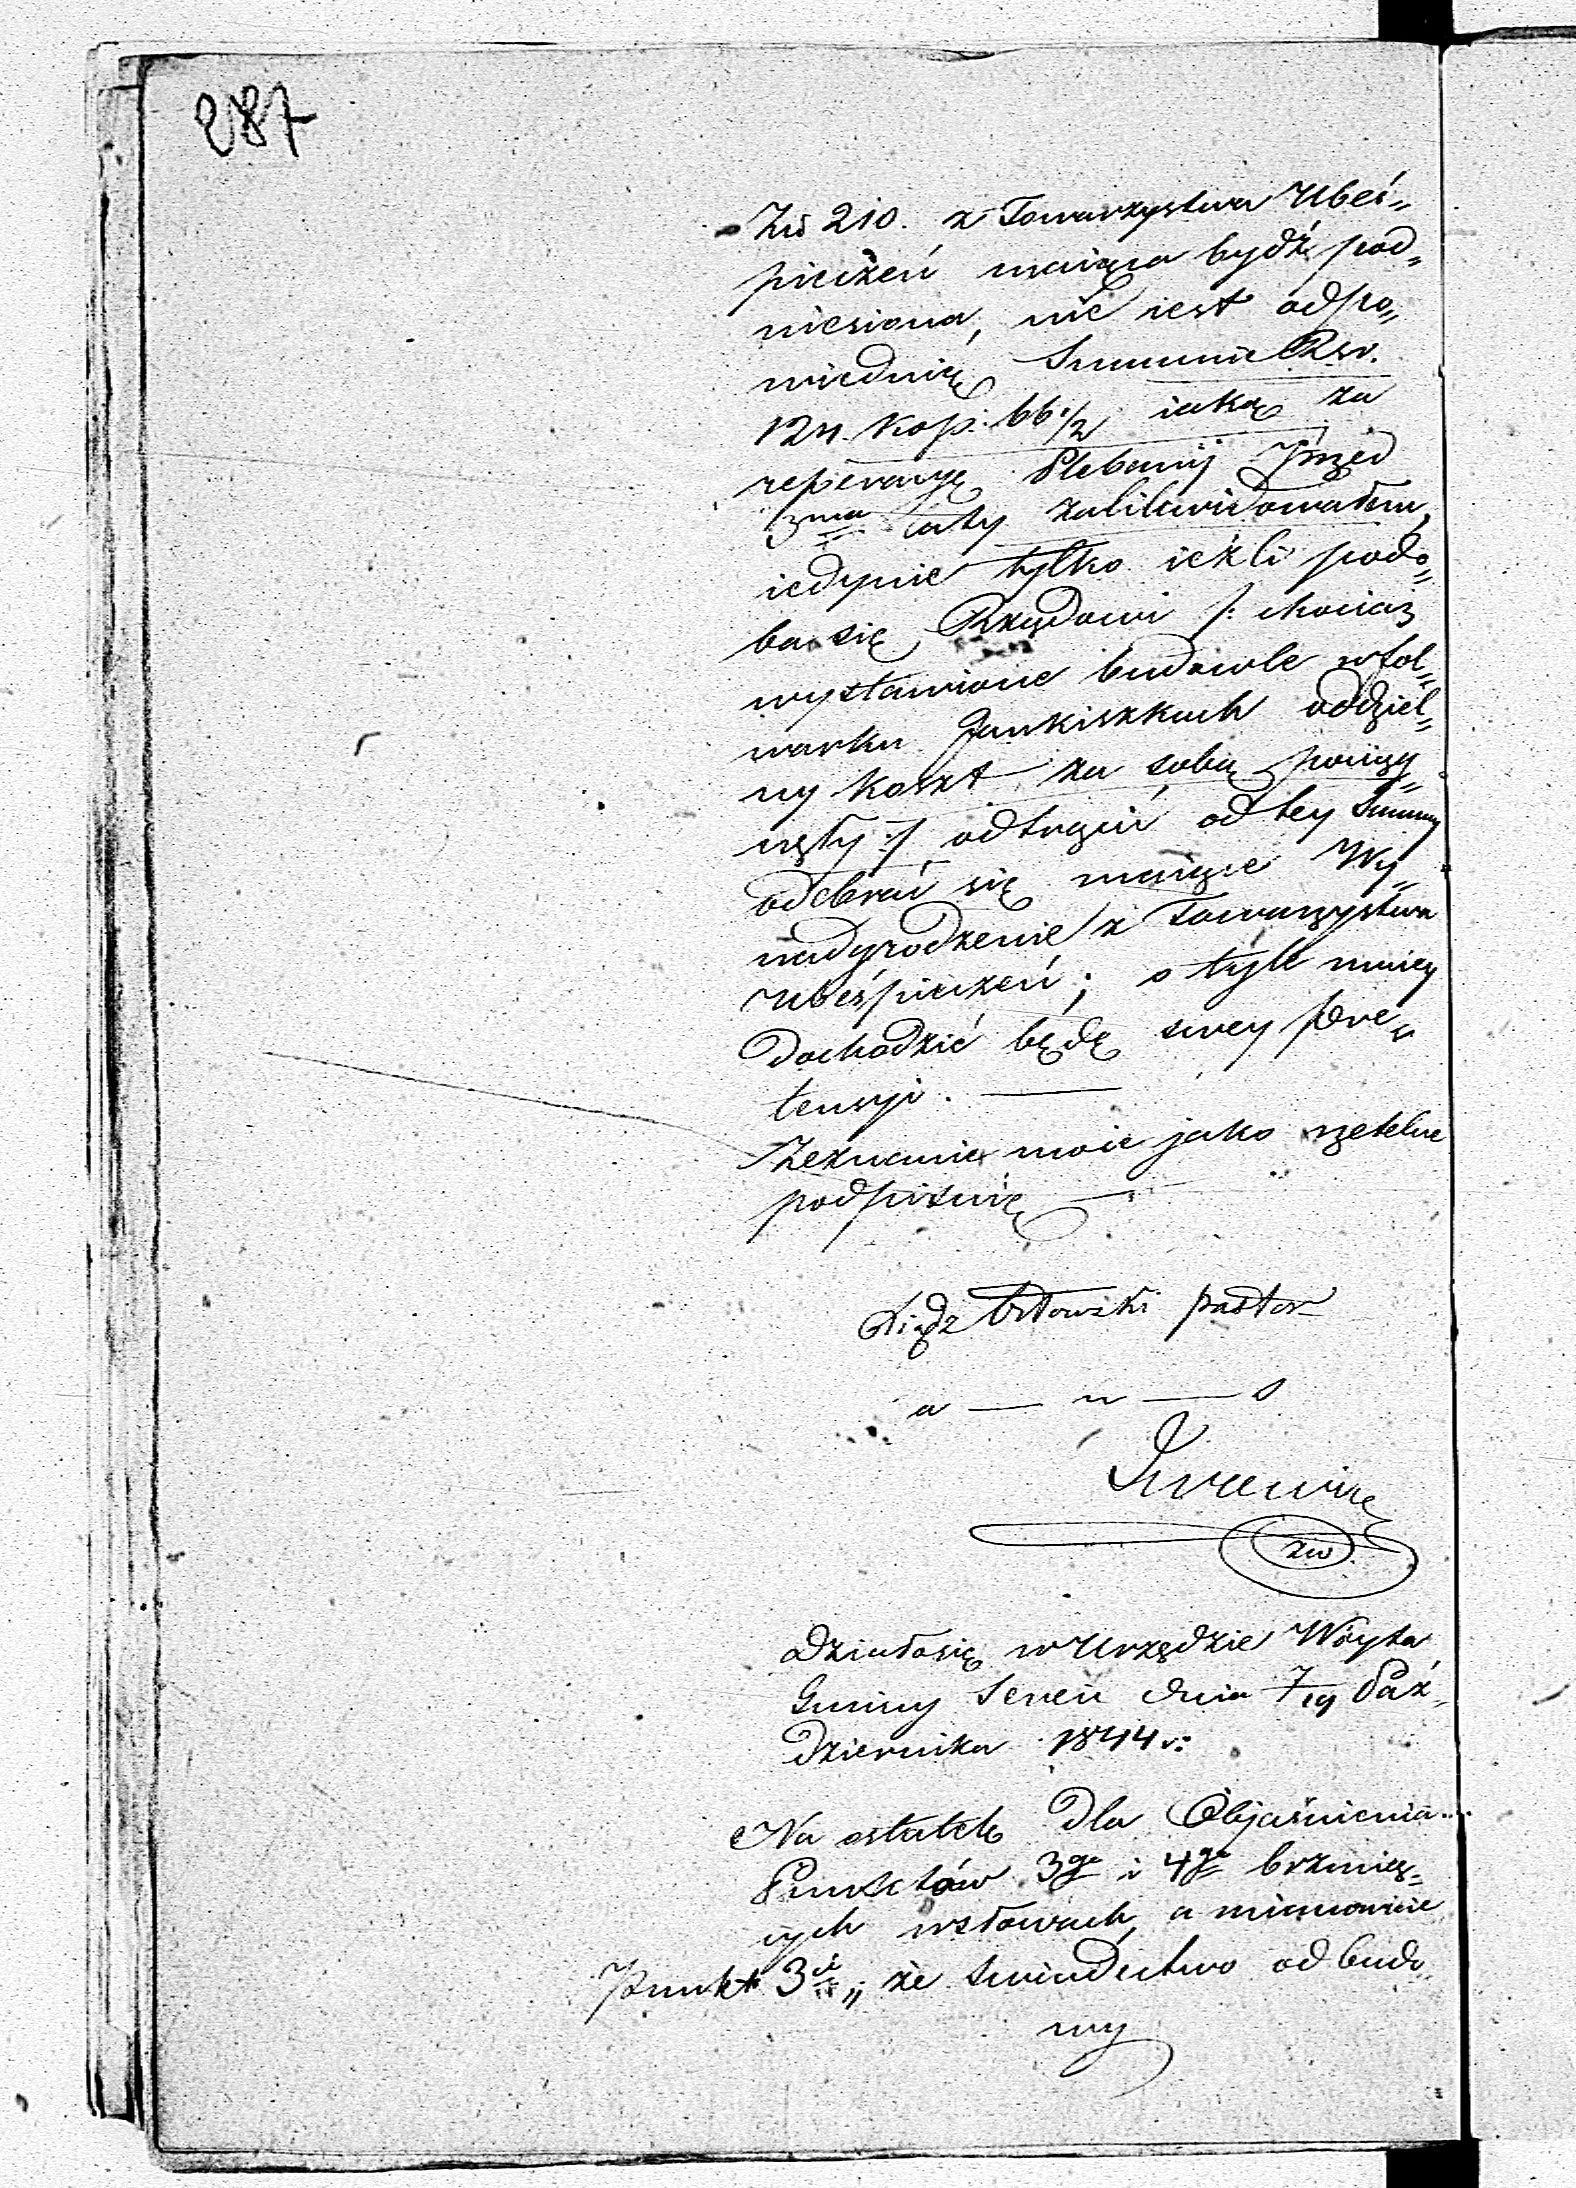 287
Zł 210. z Towarzystwa Ubeś„
pieczeń maiąca bydź pod„
niesiona, nie iest odpo„
wiednią Summie Rsr.
124. kop: 66 1/2 iaką za
reperacyę Plebanij Przed
3ma laty zalikwidowałem,
iedynie tylko ieżli podo„
ba się Rządowi /: chociaż
wystawione budowle w fol„
warku Jankiszkach oddziel„
ny koszt za sobą pociągy„
nęły :/ odtrącić od tey Summy
odebrać się maiące Wy„
nadgrodzenie z Towarzystwa
Ubeśpieczeń; o tyle mniey
dochodzić będę swey Pre„
tensyi. —
Zeznanie moie jako rzetelne
podpisuię —
Xiądz Orłowski pastor
a — u — s
zw
Działo się w Urzędzie Wóyta
Gminy Sereie dnia 7/19 Paź„
dziernika 1844 r:
Na ostatek dla Objaśnienia
Punktów 3go i 4go brzmią„
cych w słowach, a mianowicie
Punkt 3ci „ że Świadectwo od budo
wy